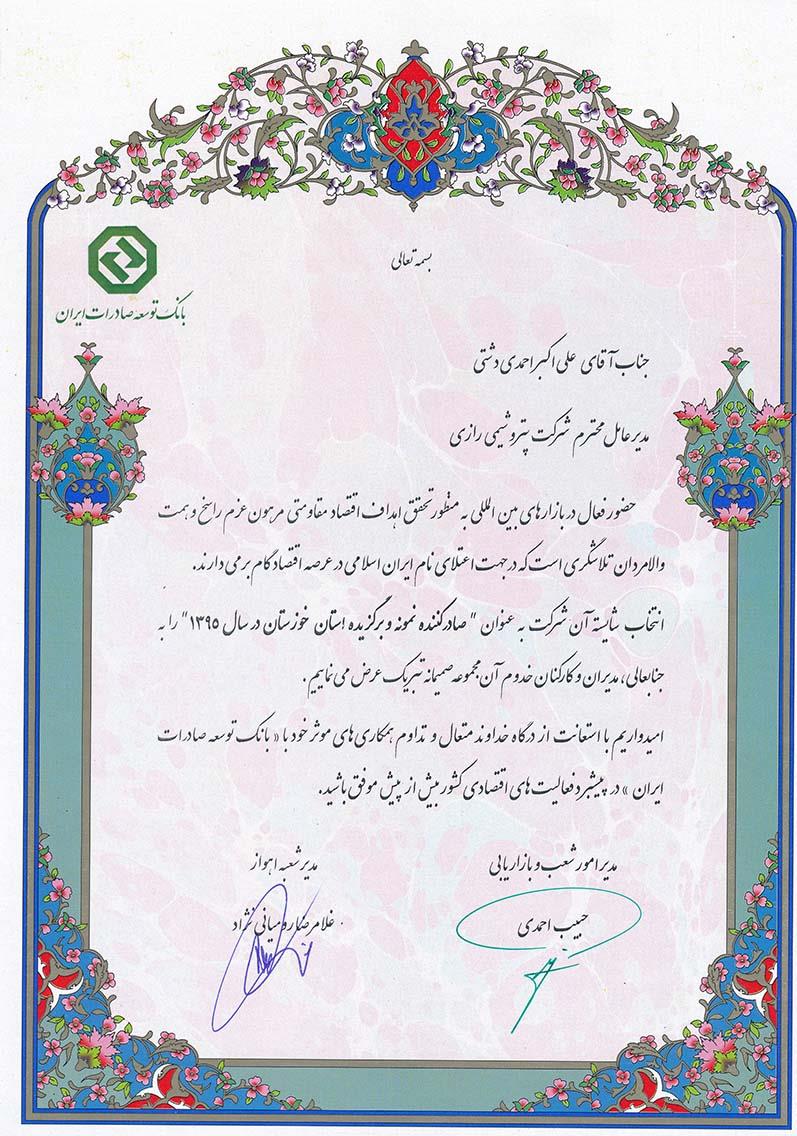 بسمه تعالی
بانک توسعه صادرات ایران
جناب آقای علی اکبر احمدی دشتی
مدیر عامل محترم شرکت پتروشیمی رازی
حضور فعال در بازارهای بین المللی به منظور تحقق اهداف اقتصاد مقاومتی مرهون عزم راسخ و همت
والامردان تلاشگری است که در جهت اعتلای نام ایران اسلامی در عرصه اقتصاد گام برمی دارند.
انتخاب شایسته آن شرکت به عنوان "صادرکننده نمونه و برگزیده استان خوزستان در سال ۱۳۹۵" را به
جنابعالی، مدیران و کارکنان خدوم آن مجموعه صمیمانه تبریک عرض می نماییم.
امیدواریم با استعانت از درگاه خداوند متعال و تداوم همکاری های موثر خود با « بانک توسعه صادرات
ایران » در پیشبرد فعالیت های اقتصادی کشور بیش از پیش موفق باشید.
مدیر امور شعب و بازاریابی
مدیر شعبه اهواز
حبیب احمدی
غلامرضا رومیانی نژاد